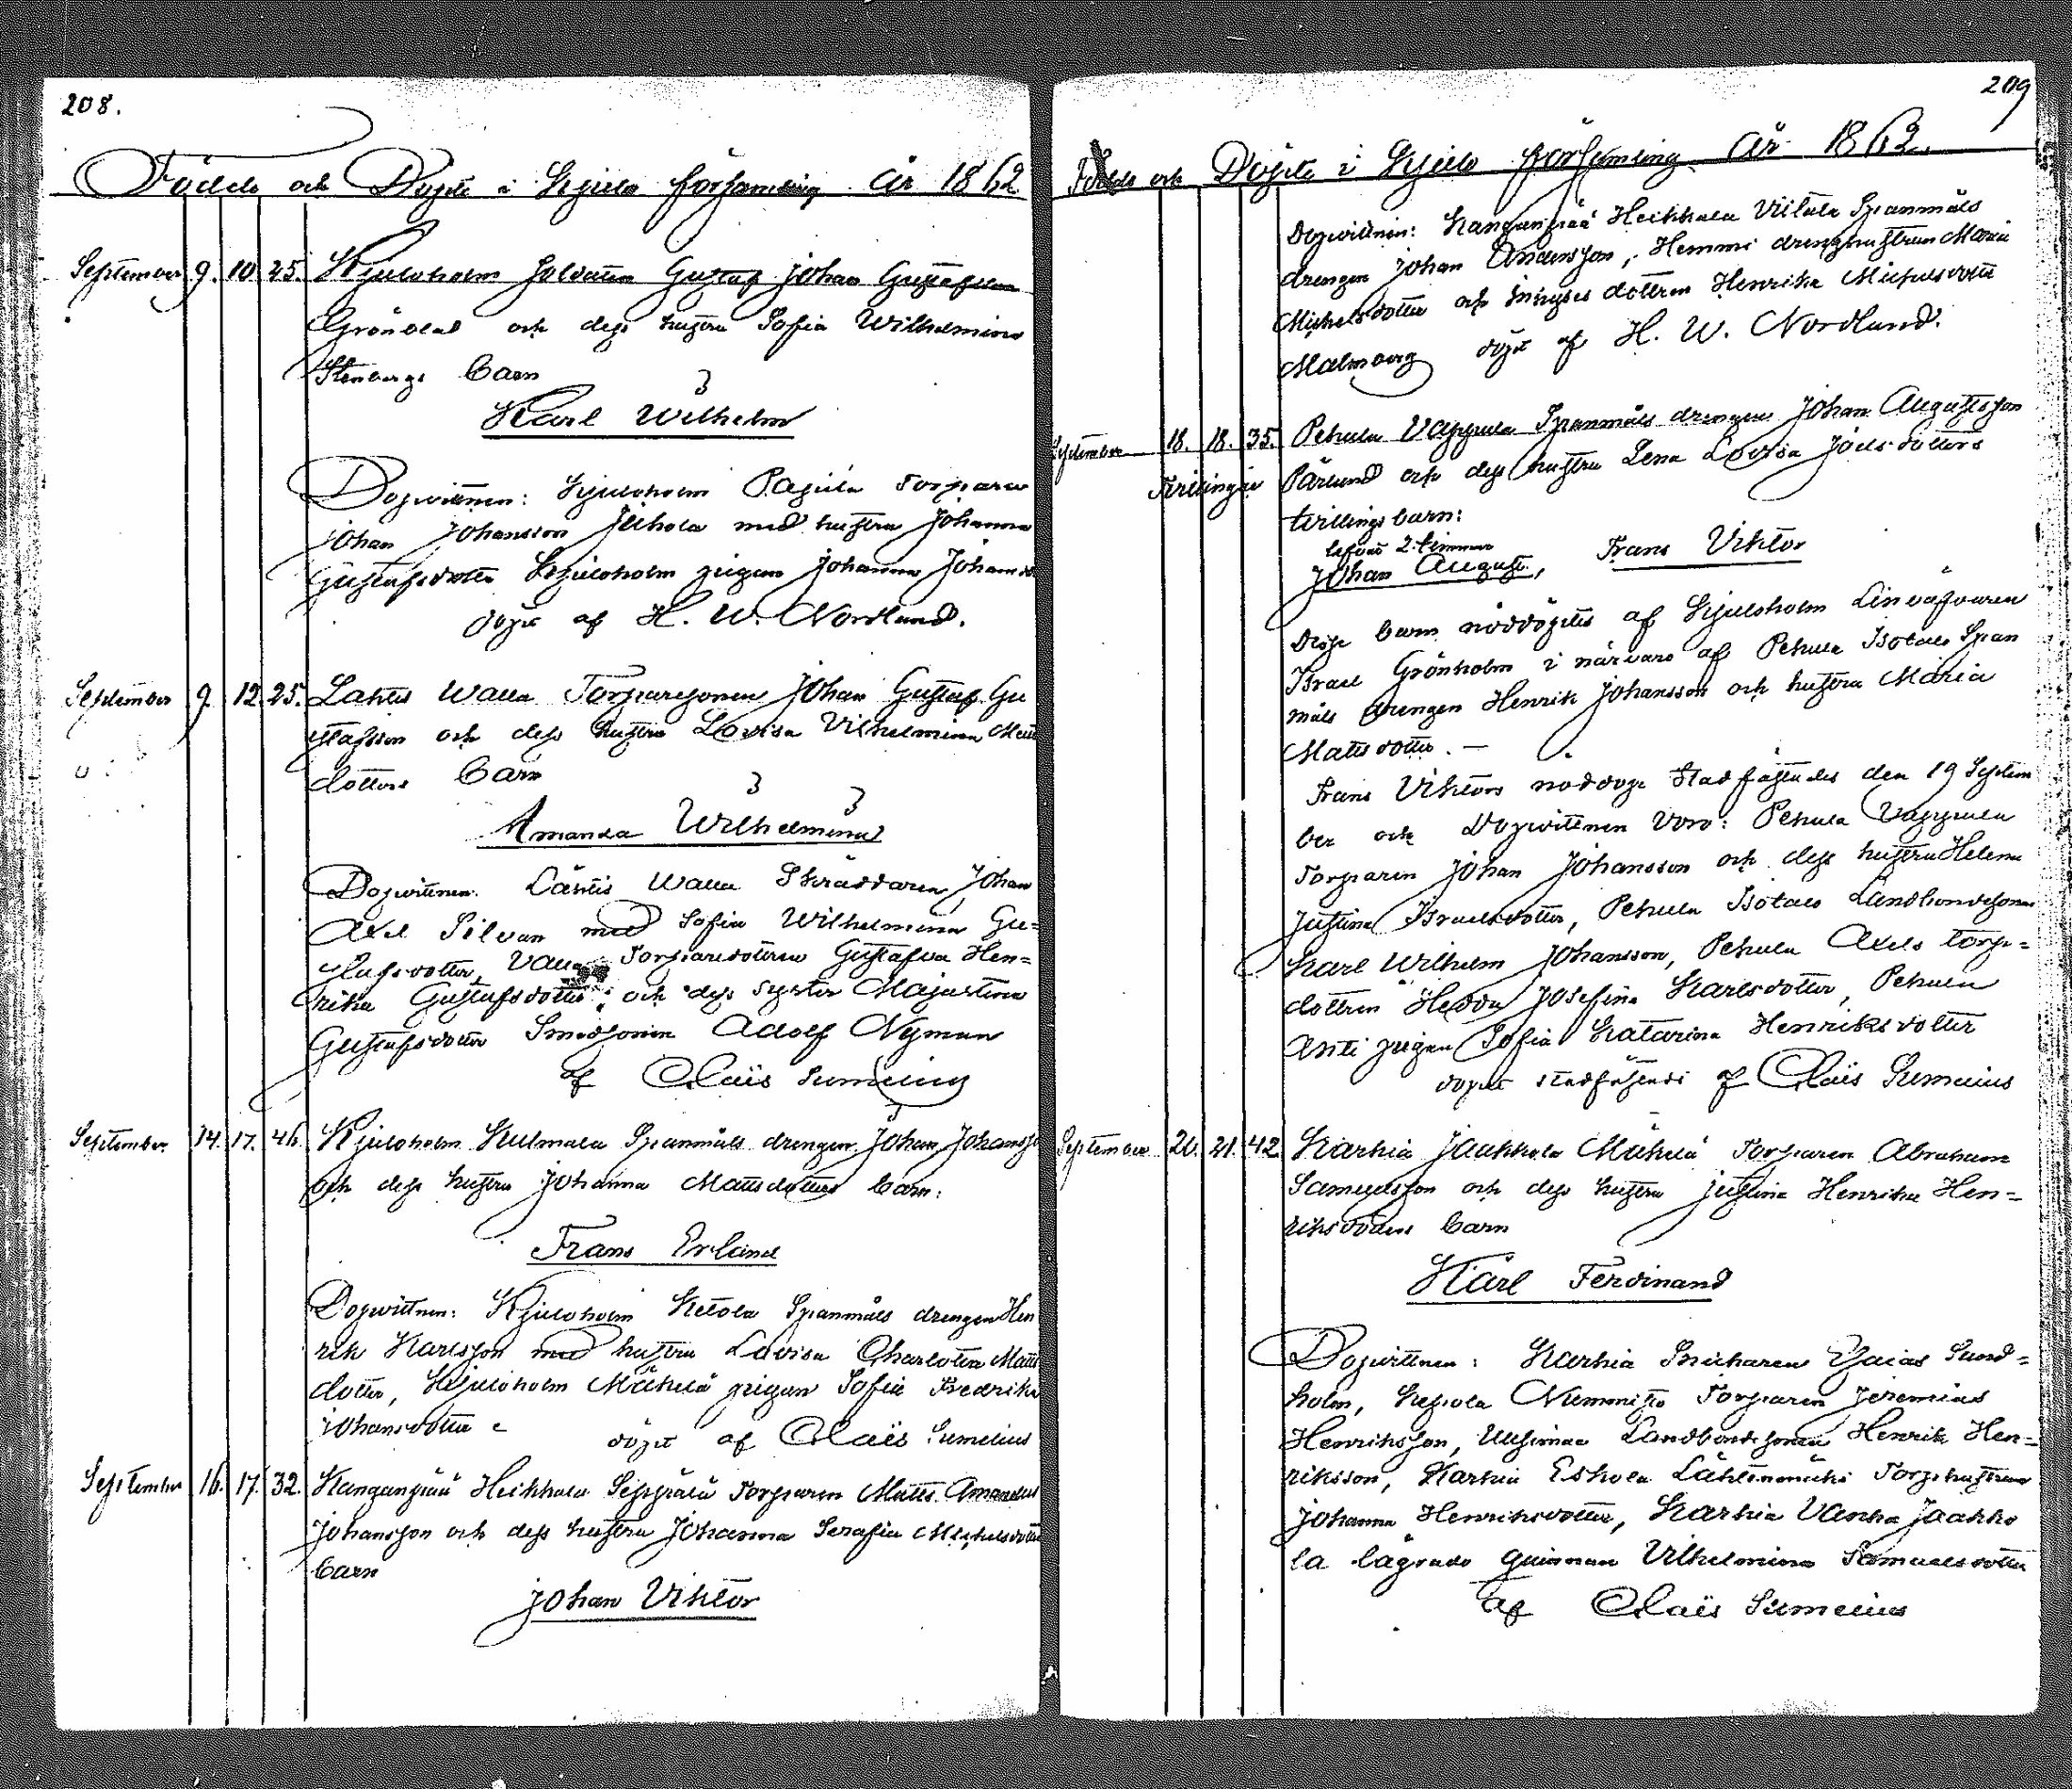 208.
Födde och Döpte i Kjulo församling år 1862
September 9. 10 25. Kjuloholm Soldaten Gustaf Johan Gustafson
Gröndal och dess hustru Sofia Wilhelmina
Stenbergs barn
Karl Wilhelm
Dopvittnen: Kjuloholm Torpare
Johan Johansson med hustru Johanna
Gustafsdotter Kjuloholm pigan Johanna Johansd
döpt af H. W. Nordlund.
September 9. 12 25. Torparesonen Johan Gustaf Gu
stafsson och dess hustru Lovisa Vilhelmina Matts
dotters barn
Amanda Wilhelmina
Dopvittnen: Skräddaren Johan
Axel Silvan med Sofia Wilhelmina Gu=
stafsdotter, Torparedottren Gustafva Hen=
rika Gustafsdotter och dess syster Majastina
Gustafsdotter Smedsonen Adolf Nyman
af Claës Sumelius
September 14. 17. 46. Kjuloholm Kulmala Spanmåls drengen Johan Johansso
och dess hustru Johanna Mattsdotters barn:
Frans Erland
Dopvittnen: Kjuloholm Ketola Spanmåls drengen Hen
rik Karlsson med hustru Lovisa Charlotta Matts
dotter, Kjuloholm Mäkelä pigan Sofia Fredrika
Johansdotter
döpt af Claës Sumelius
September 16. 17. 32. Kanganpää Heikkola Seppälä Torparen Matts Amandus
Johansson och dess hustru Johanna Serafia Michelsdotters
barn
Johan Viktor
209
Födde och Döpte i Kjulo församling år 1862.
Dopvittnen: Kanganpää Heikkola Viitala Spanmåls
drengen Johan Andersson, Hemmi drenghustrun Maria
Michelsdotter och Inhyses dottren Henrika Michelsdotter
Malmberg döpt af H. W. Nordlund.
September 18. 18. 35. Pehula Vappula Spanmåls drengen Johan Augustsson
Pärlund och dess hustru Lena Lovisa Joelsdotters
tvillingsbarn:
lefvat 2 timmar
Johan August, Frans Viktor
Desse barn nöddöptes af Kjuloholm
Israel Grönholm i närvaro af Pehula Isotalo Span
måls drengen Henrik Johansson och hustru Maria
Matts dotter. —
Frans Viktors nöddop stadfästades den 19 Septem
ber och Dopvittnen voro: Pehula Vappula
Torparen Johan Johansson och dess hustru Helena
Justina Israelsdotter, Pehula Isotalo Landbondesonen
Karl Wilhelm Johansson, Pehula Axels torp=
dottren Hedda Josefina Karlsdotter, Pehula
Anti pigan Sofia Katarina Henriksdotter
dopet stadfästadt af Claës Sumelius
September 20. 21. 42 Karhia Jaakkola Mäkelä Torparen Abraham
Samuelsson och dess hustru Justina Henrika Hen=
riksdotters barn
Karl Ferdinand
Dopvittnen: Karhia Snickaren Esaias Sund=
holm, Kepola Nummisto Torparen Jeremias
Henriksson, Uusimaa Landbondesonen Henrik Hen=
riksson, Karhia Eskola Lähtenmäki Torphustrun
Johanna Henriksdotter, Karhia Vanha Jaakko
la lägrade qvinnan Vilhelmina Samuelsdotter
af Claës Sumelius